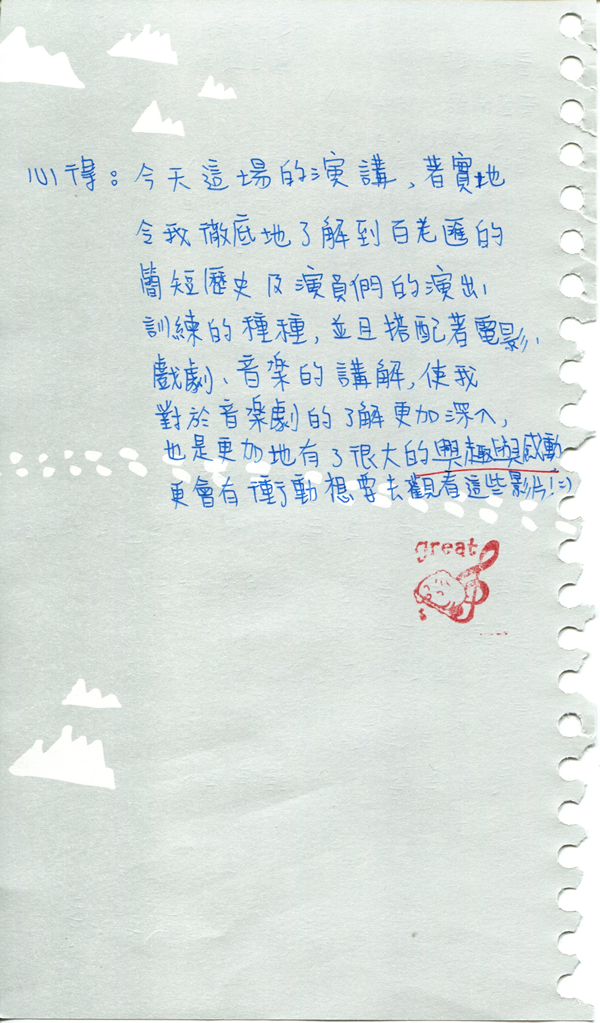 心得：今天這場的演講，著實地
令我徹底地了解到百老匯的
簡短歷史及演員們的演出、
訓練的種種，並且搭配著電影、
戲劇、音樂的講解，使我
對於音樂劇的了解更加深入，
也是更加地有了很大的興趣與感動
更會有衝動想要去觀看這些影片!=)
great